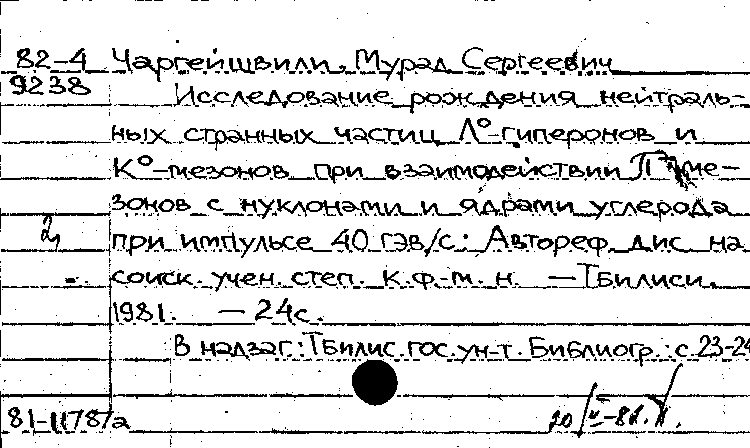 82-4 Чаргейшвили, Мурад Сергеевич
9238 Исследование рождения нейтраль-
ных странных частиц Λ°-гиперонов и
К°-мезонов при взаимодействии П⁻ ме-
зонов с нуклонами и ядрами углерода
2 при импульсе 40 гэв/с: Автореф. дис на
соиск. учен. степ. к.ф.-м.н. — Тбилиси,
1981. — 24с.
В надзаг: Тбилис. гос. ун-т. Библиогр.: с 23-24
81-11787а